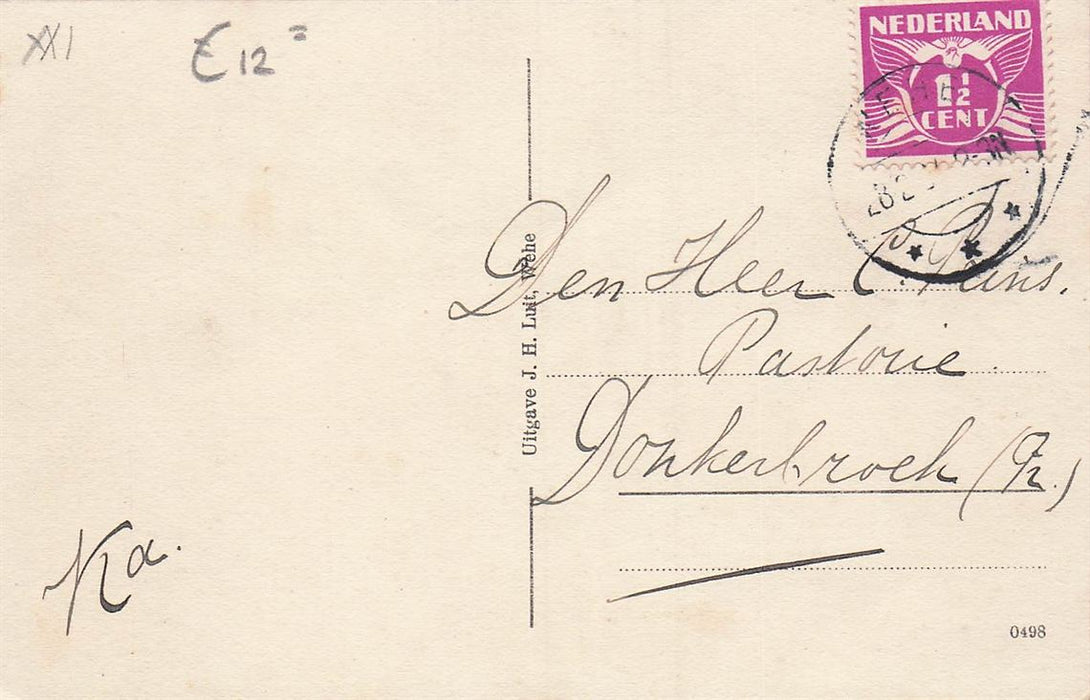 XXI
E 12=
NEDERLAND
1½
CENT
WEHE
28 2
Uitgave J. H. Luit, Wehe
Den Heer C.
Pastorie.
Donkerbroek (Fr.)
Ka.
0498